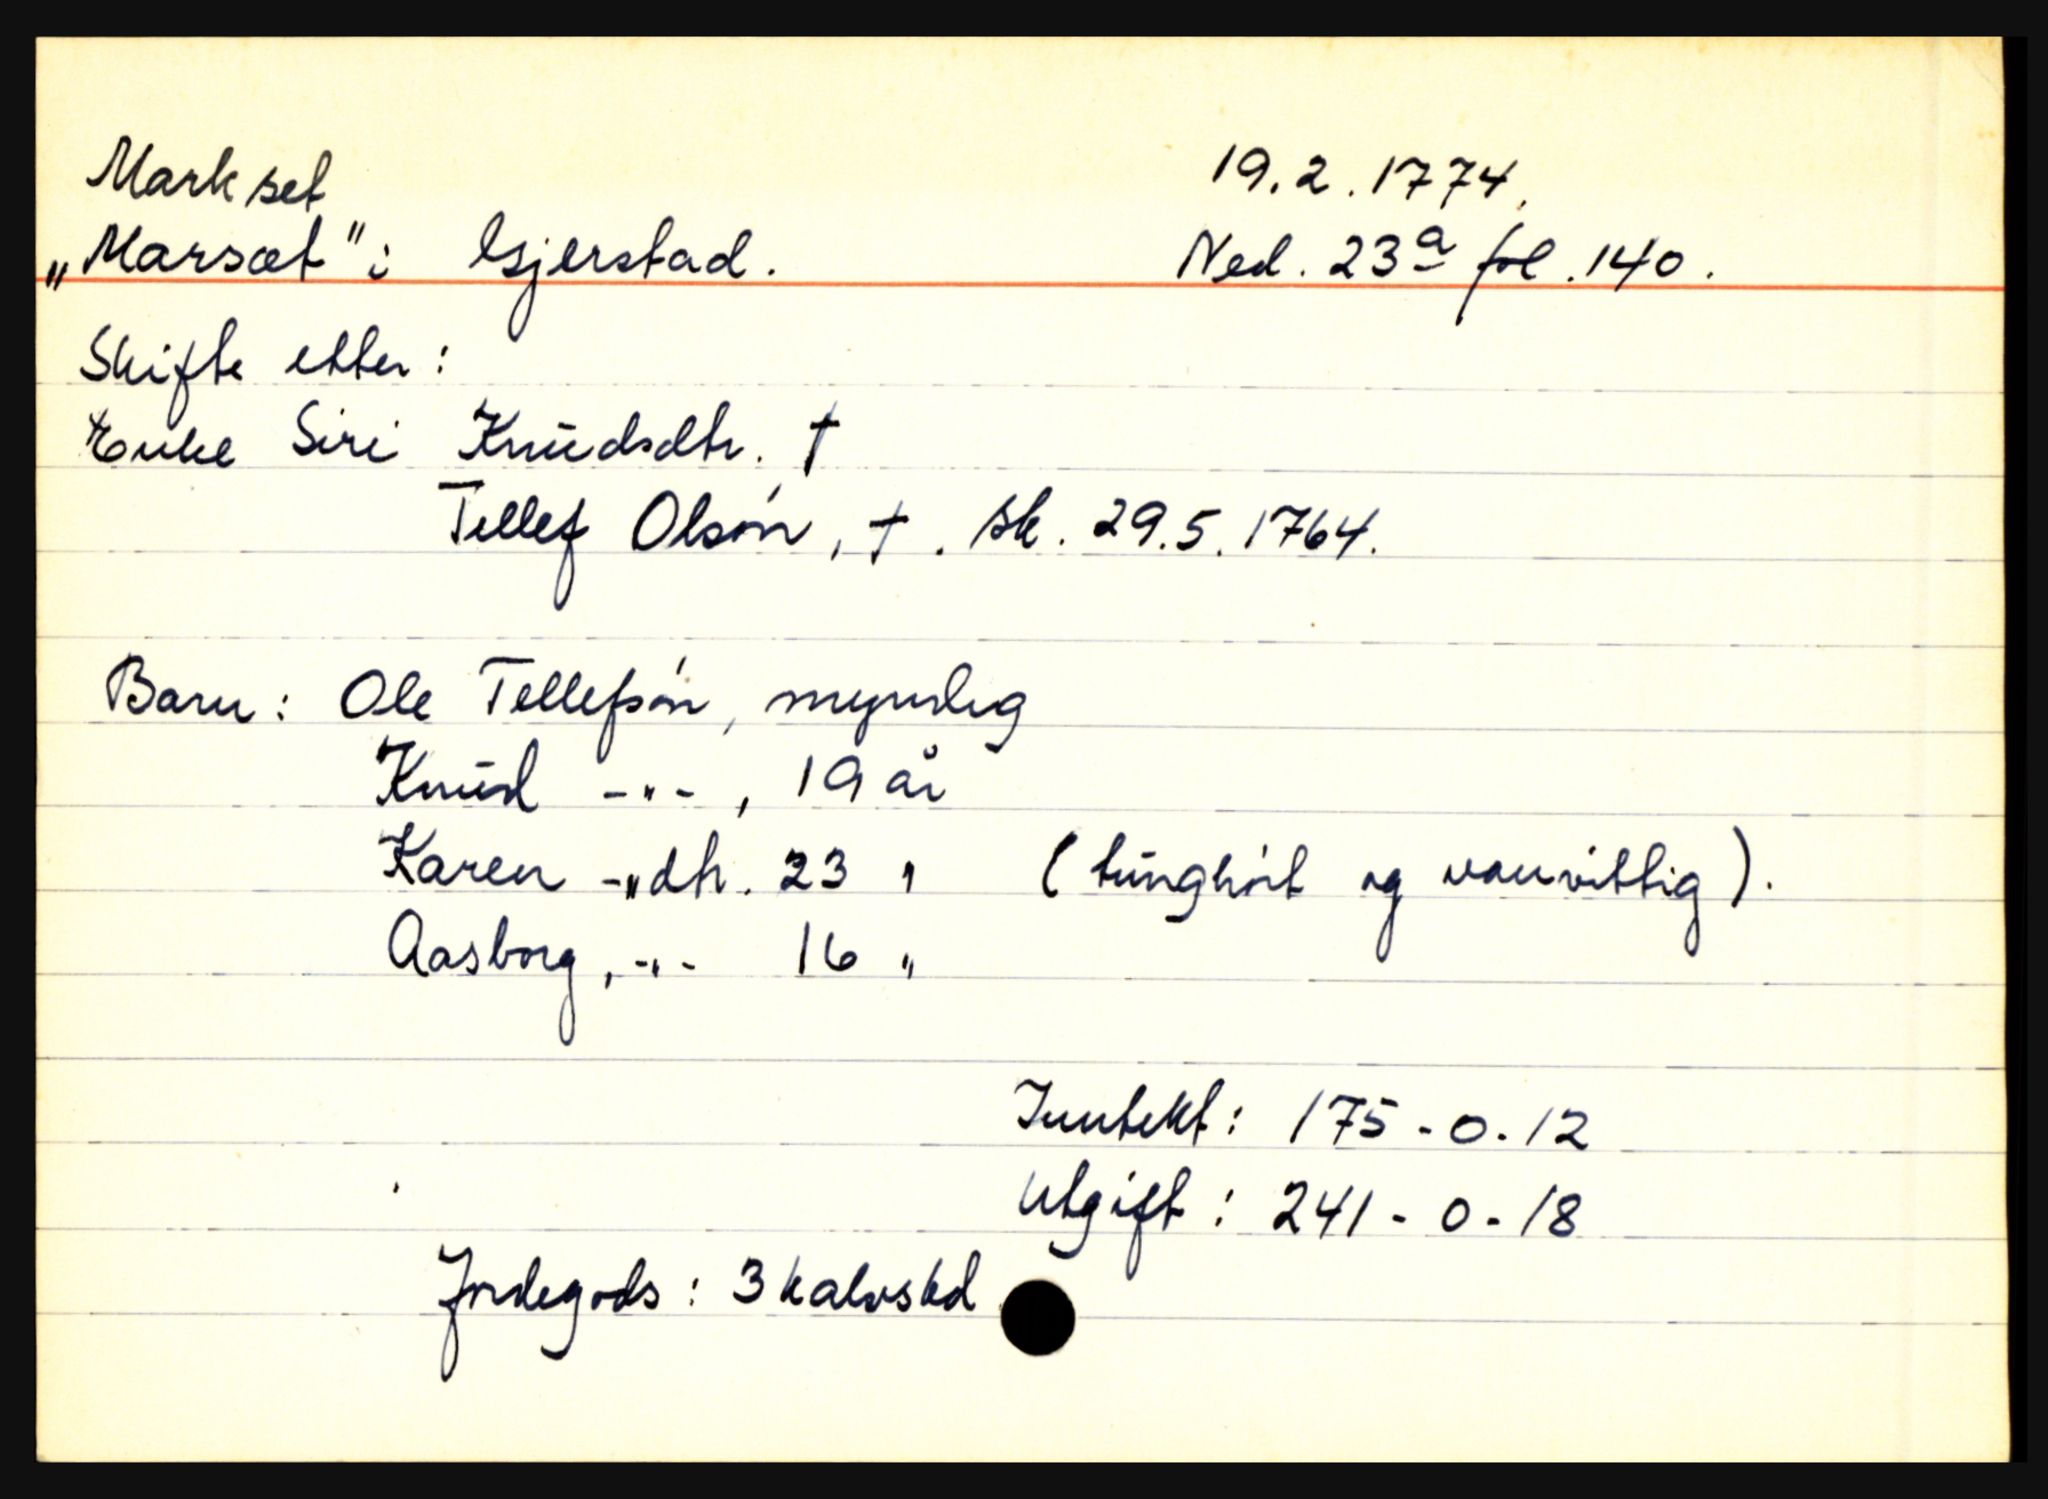 Markset
19.2.1774.
„Marsæt" i Gjerstad.
Ned. 23a fol. 140.
Skifte etter:
Enke Siri Knudsdtr. †
Tellef Olsøn, †. sk. 29.5.1764.
Barn: Ole Tellefsøn, myndig
Knud -"-, 19 år
Karen -"dtr. 23 " (tunghørt og vanvittig).
Aasborg, -"- 16 "
Inntekt: 175-0-12
Utgift: 241-0-18
Jordegods: 3 kalvskd